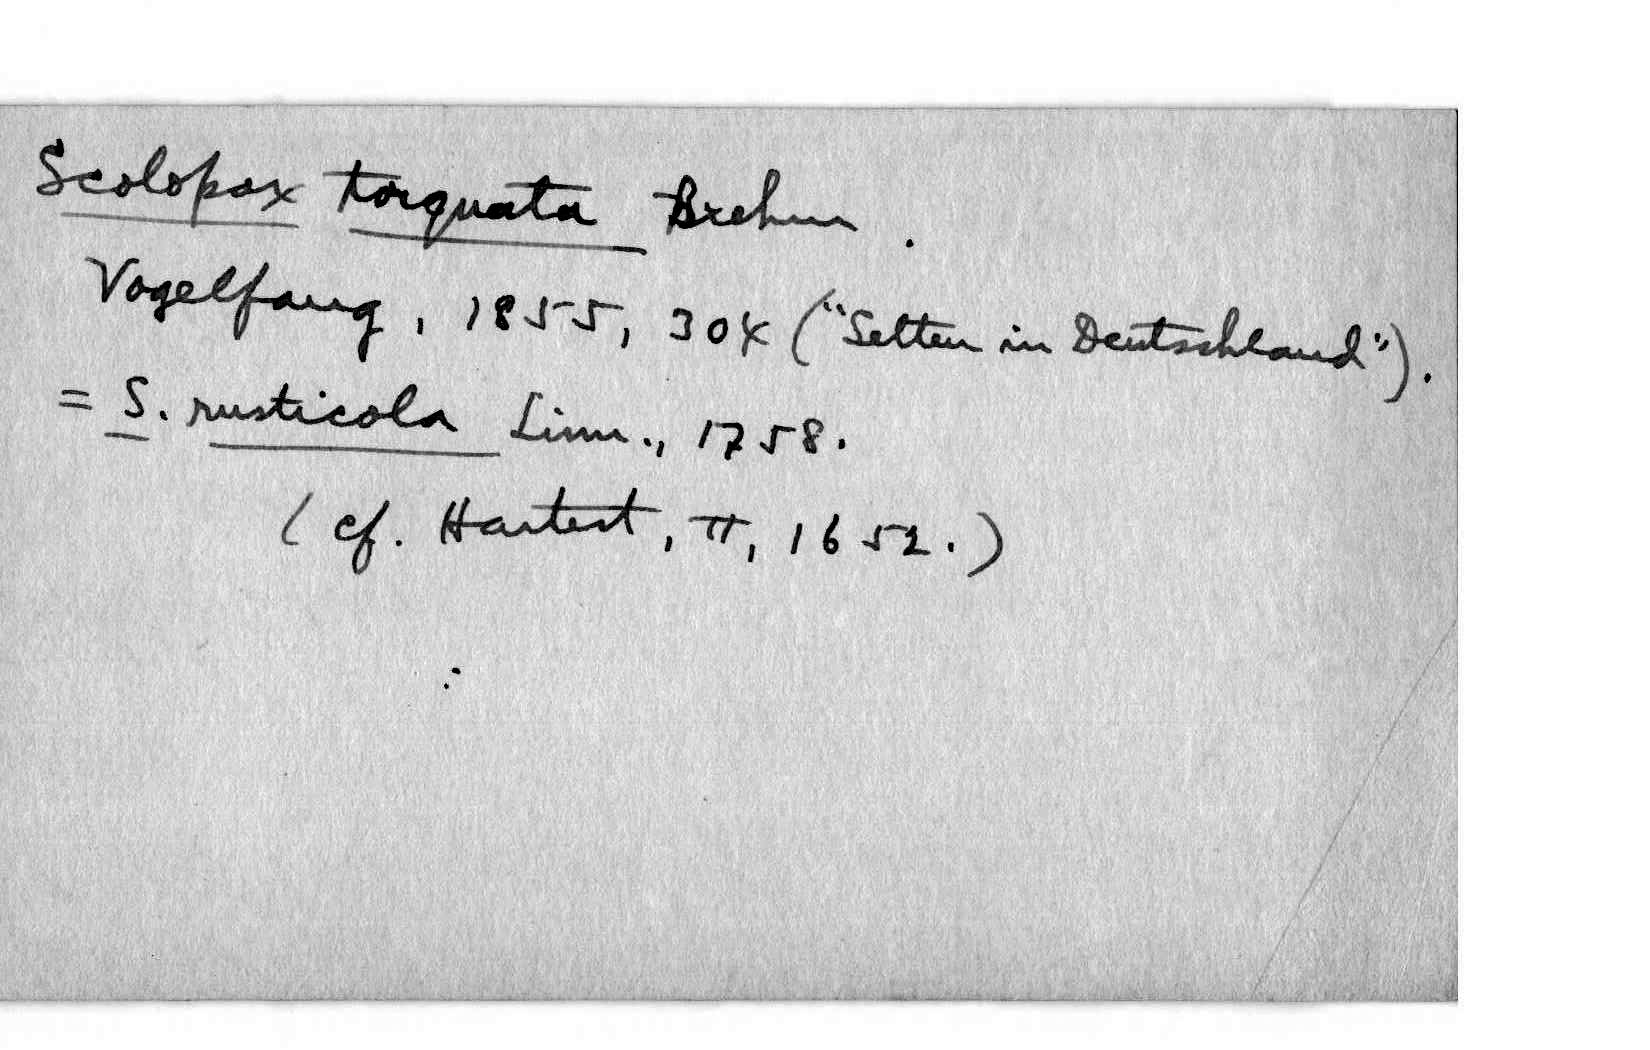 Scolopax torquata Brehm.
Vogelfang, 1855, 304 ("Selten in Deutschland").
= S. rusticola Linn., 1758.
(cf. Hartert, II, 1652.)